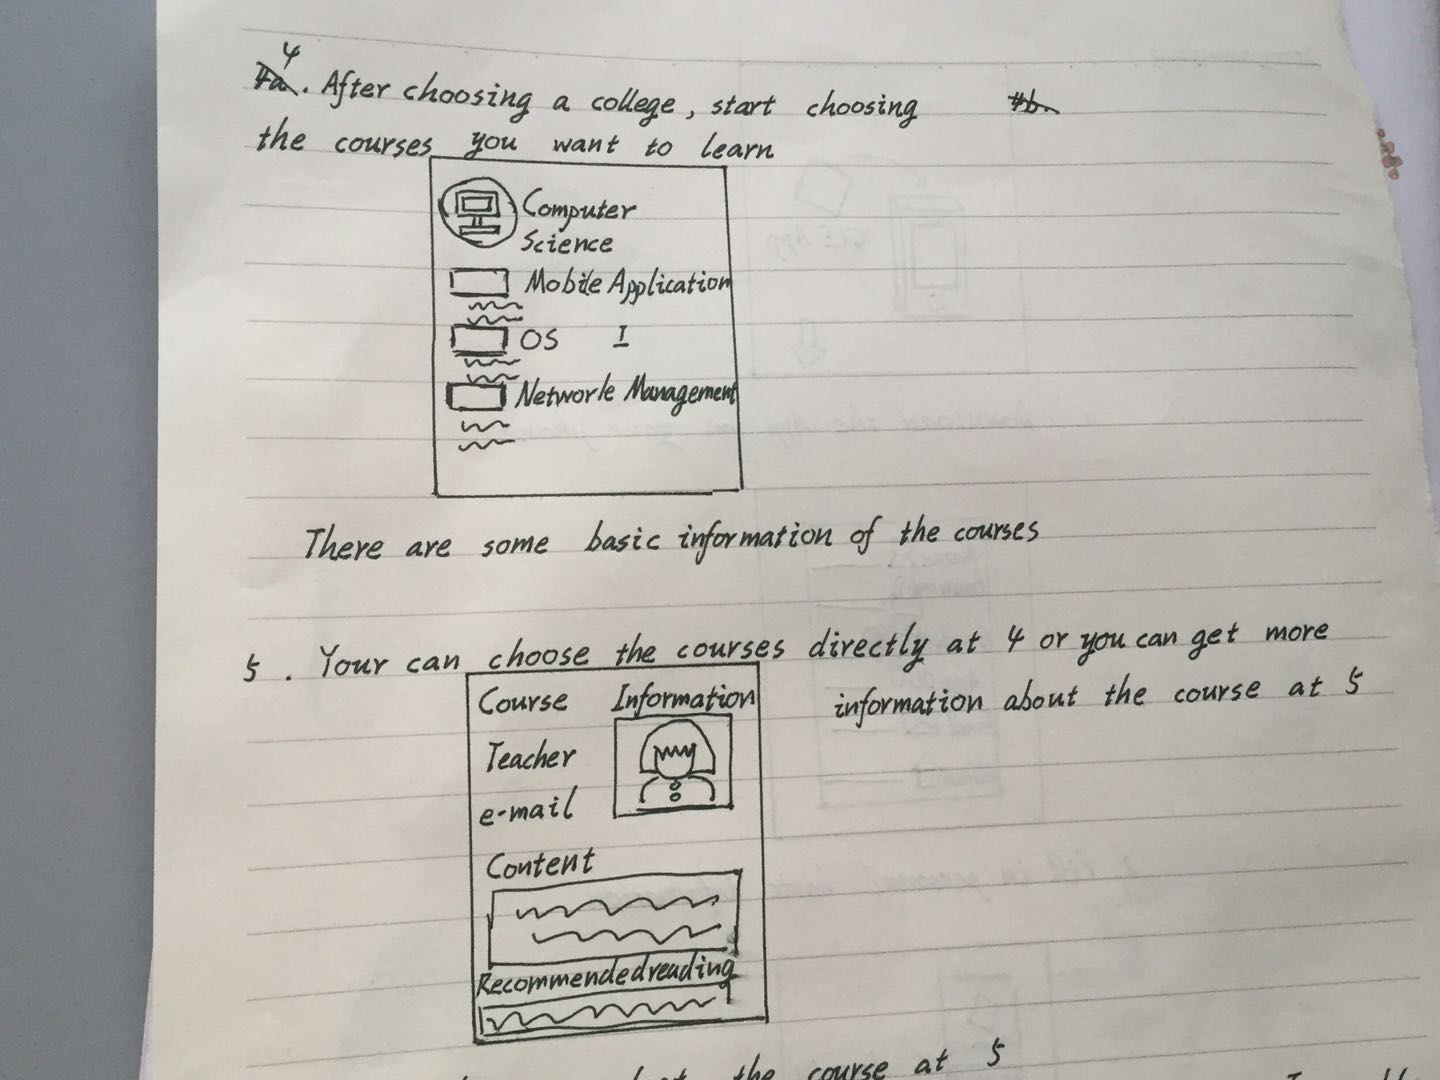 4. After choosing a college, start choosing
the courses you want to learn
Computer
Science
Mobile Application
OS I
Network Management
There are some basic information of the courses
5. Your can choose the courses directly at 4 or you can get more
information about the course at 5
Course Information
Teacher
e-mail
Content
Recommended reading
the course at 5